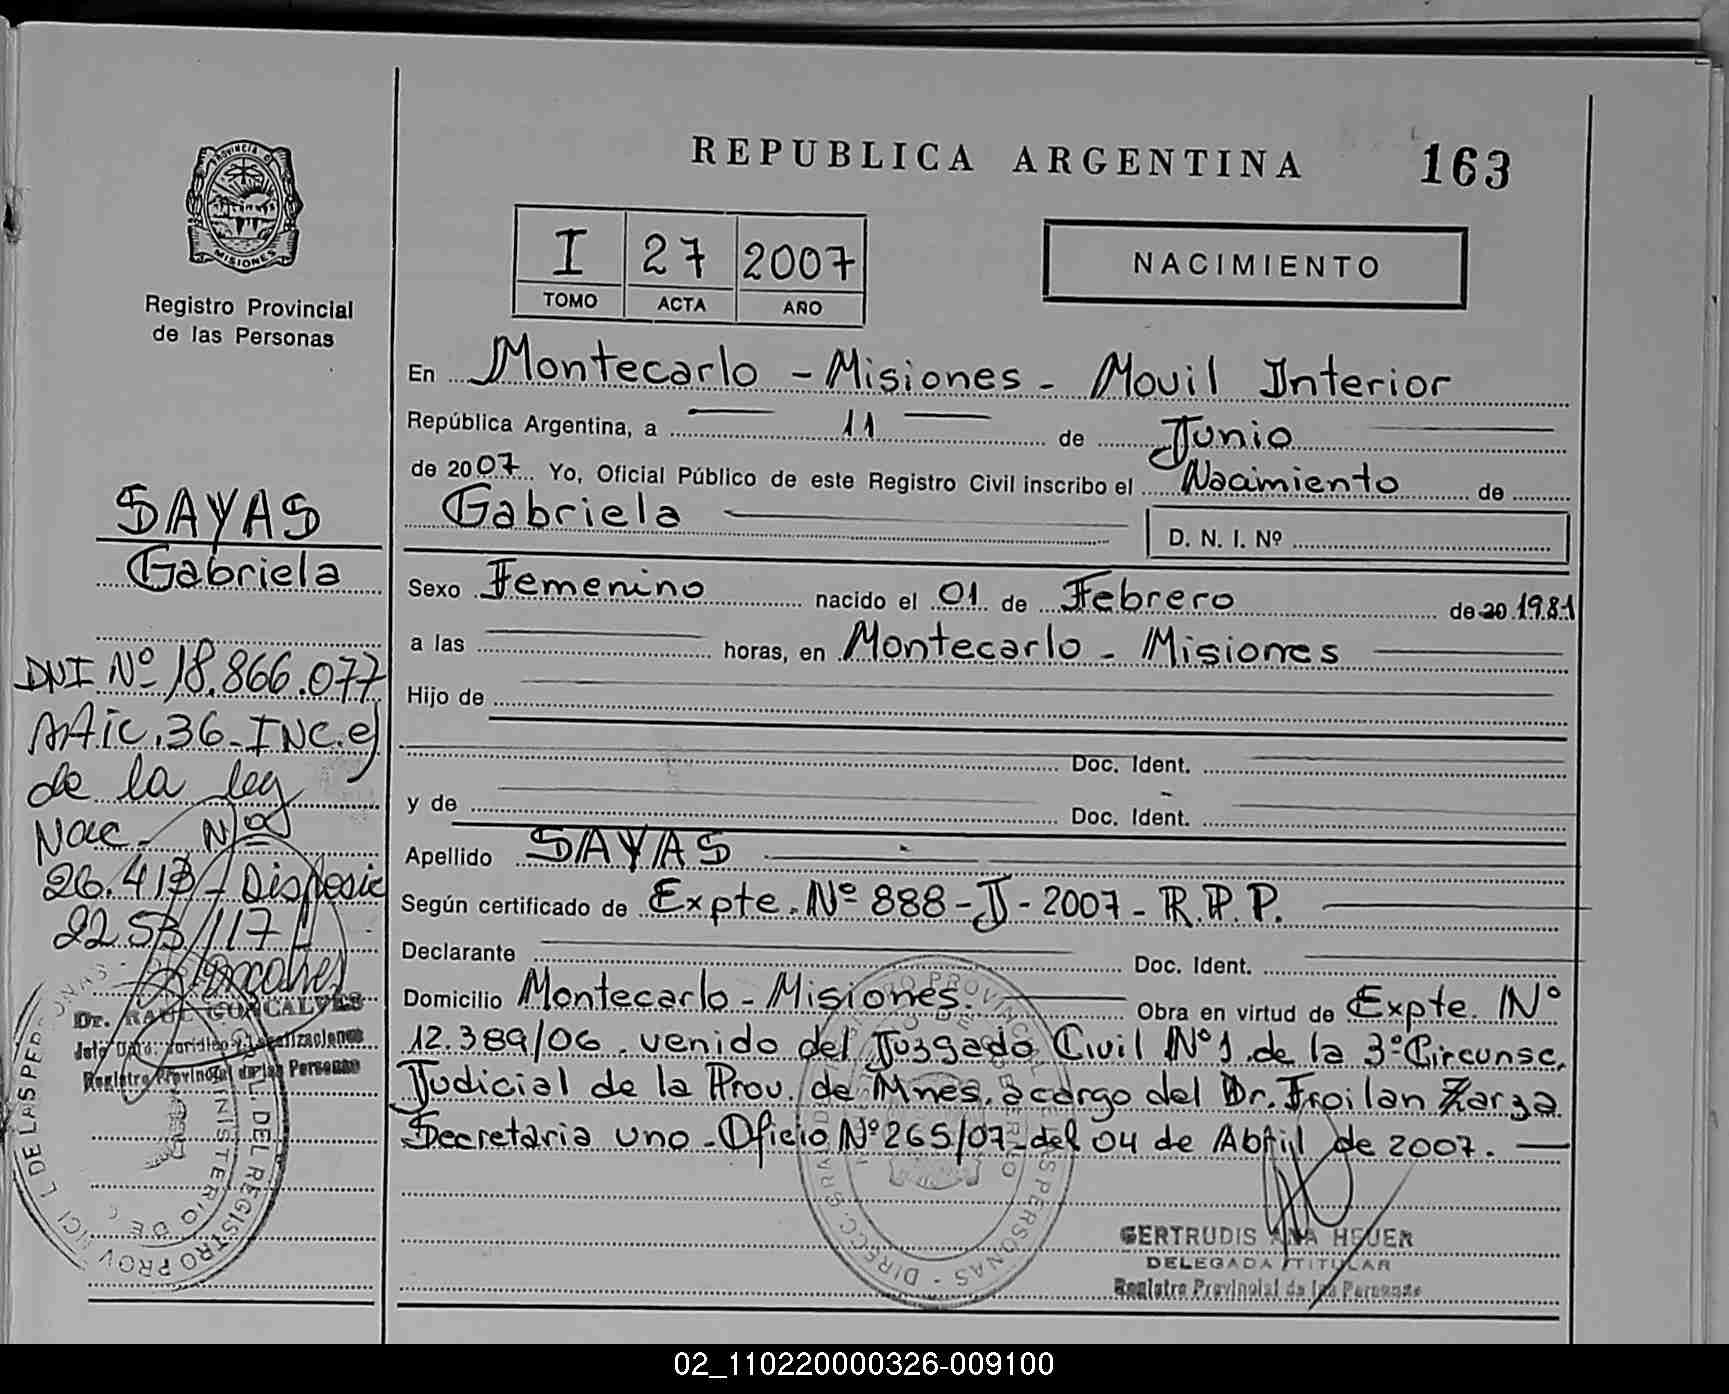 PROVINCIA D
MISIONES
Registro Provincial
de las Personas
SAYAS
Gabriela
DNI Nº 18.866.077
Artic. 36 - INC. e)
de la ley
Nac. Nº
26.413 - Disposic
2253/17
Dr. RAUL GONCALVES
Jefe Dpto. Jurídico y Legalizaciones
Registro Provincial de las Personas
REPUBLICA ARGENTINA 163
I 27 2007
TOMO ACTA AÑO
NACIMIENTO
En Montecarlo - Misiones - Movil Interior
República Argentina, a 11 de Junio
de 2007 Yo, Oficial Público de este Registro Civil inscribo el Nacimiento de
Gabriela D. N. I. Nº
Sexo Femenino nacido el 01 de Febrero de 20 1981
a las horas, en Montecarlo - Misiones
Hijo de
Doc. Ident.
y de Doc. Ident.
Apellido SAYAS
Según certificado de Expte. Nº 888 - J - 2007 - R.P.P.
Declarante Doc. Ident.
Domicilio Montecarlo - Misiones. Obra en virtud de Expte. Nº
12.389/06. venido del Juzgado Civil Nº 1 de la 3º Circunsc.
Judicial de la Prov. de Mnes. a cargo del Dr. Froilan Zarza
Secretaria uno - Oficio Nº 265/07 - del 04 de Abril de 2007.
GERTRUDIS ANA HEUER
DELEGADA TITULAR
Registro Provincial de las Personas
02_110220000326-009100